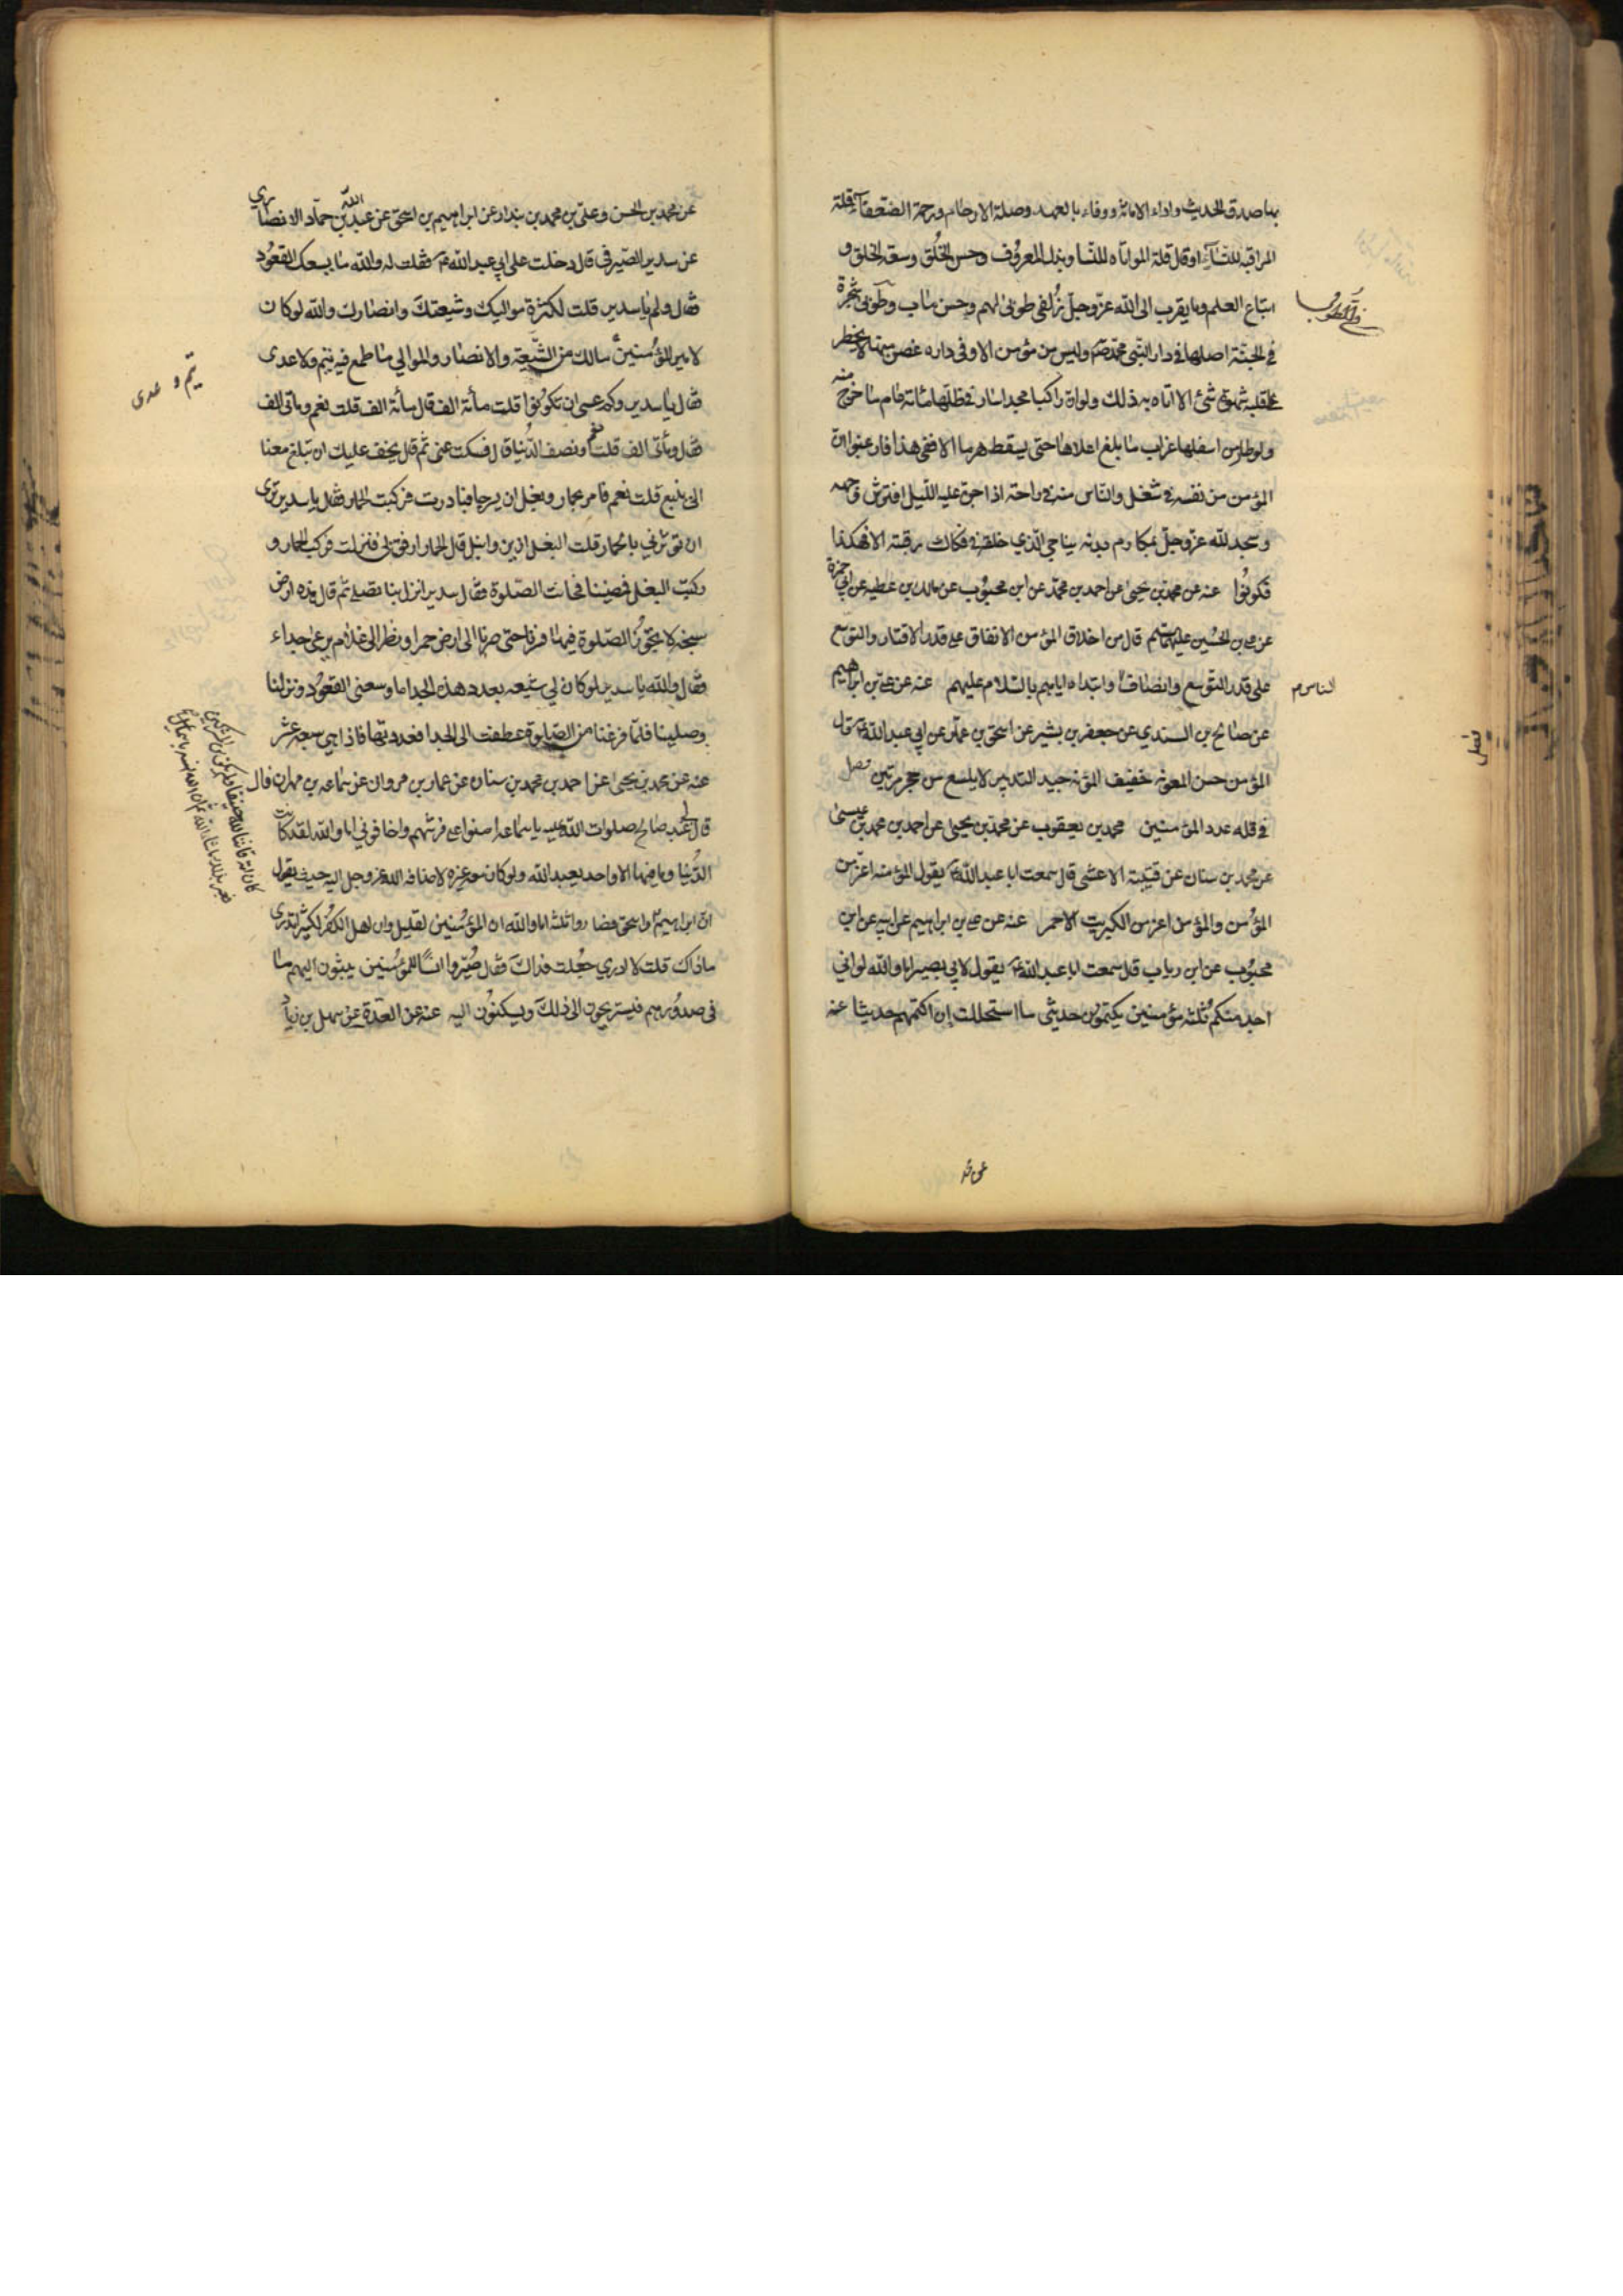 بها صدق الحديث واداء الامانة ووفاء بالعهد وصلة الارحام ورحمة الضعفآء وقلة
المراقبة للنسآء اوقال قلة المواتاه للنسا وبذل المعروف وحسن الخُلُق وسعة الخلق و
اتباع العلم وما يقرب الى الله عزّوجل زُلفى طوبىٰ لهم وحسن مٰاب وطوبىٰ شجرة
في الجنّة اصلها في دار النّبي محمد صم وليس من مؤمن الا وفى داره غصن منها لا يخطر
على قلبه شهوة شئ الا اتاه به ذلك ولوان راكبا مجدا سٰار في ظلّها مائة عٰام مٰا خرج منه
ولو طٰار من اسفلها غراب مٰا بلغ اعلاهٰا حتى يسقط هرما الا ففي هذا فارغبوا انّ
المؤمن من نفسه في شغل والنّاس منه في راحته اذا جنّ عليه اللّيل افترش وجهه
وسجد لله عزّوجلّ بمكارم بدنه يناجي الّذي خلقه في فكاك رقبته الا فهكذا
فكونُوا عنه عن محمد بن يحيىٰ عن احمد بن محمّد عن ابن محبُوب عن مالك بن عطيه عن ابي حمزة
عن علي بن الحُسين عليهما سلم قال من اخلاق المؤمن الانفاق على قدر الاقتار والتوسّع
على قدر التوسّع وانصٰاف وابتداه اياهم بالسّلام عليهم عنه عن علي بن ابراهيم
الناس م
عن صٰالح بن السندي عن جعفر بن بشير عن اسحٰق بن عمّار عن ابي عبدالله ع قال
المؤمن حسن المعونه خفيف المؤنه جيد التدبير لا يلسع من حجر مرتين فصل
فصل
في قله عدد المؤمنين محمد بن يعقوب عن محمّد بن يحيىٰ عن احمد بن محمد بن عيسىٰ
عن محمد بن سنان عن قتيبة الاعشى قال سمعت ابا عبدالله ع يقول المؤمنه اعزّ من
المؤمن والمؤمن اعز من الكبريت الاحمر عنه عن علي بن ابراهيم عن ابيه عن ابن
محبُوب عن ابن رياب قال سمعت ابا عبدالله ع يقول لابي بصير اما والله لو اني
اجد منكم ثلثه مؤمنين يكتمون حديثي مٰا استحللت ان اكتمهم حديثا عنه
عن محمد بن الحسن وعلىّ بن محمد بن بندار عن ابراهيم بن اسحٰق عن عبد الله بن حمّاد الانصٰاري
عن سدير الصّيرفى قال دخلت على ابي عبدالله ع فقلت له والله مٰا يسعك القعُود
فقال ولم يٰا سدير قلت لكثرة مواليك وشيعتك وانصٰارك والله لو كان
لامير المؤمنين ع مالك من الشّيعة والانصٰار والموالي مٰا طمع فيه تيم ولا عدى
تيم و عدى
فقال يٰا سدير وكم عسى ان تكونُوا قلت مأئة الف قال مأئة الف قلت نعم وماتى الف
فقال وماتى الف قلت نعم ونصف الدّنيا قال فسكت عنى ثمّ قال يخف عليك ان تبلغ معنا
الى ينبع قلت نعم فامر بحمار وبغل ان يسرجا فبادرت فركبت الحمار فقال يا سدير ترى
ان تؤثرني بالحمار قلت البغل ازين وانبل قال الحمار ارفق بي فنزلت فركب الحمار و
ركبت البغل فمضينا فحانت الصّلوة فقال سدير انزل بنا نصلي ثم قال هذه ارض
سبخه لا يجُوزُ الصّلوة فيهٰا فسرنا حتى صرنا الى ارض حمرا ونظر الى غلام يرعىٰ جداء
فقال والله يٰا سدير لو كان لي شيعه بعدد هذه الجدا ما وسعنى القعُود ونزلنا
وصلينا فلمّا فرغنا من الصّلوة عطفت الى الجدا فعددتها فاذا هي سبعه عشر
عنه عن محمد بن يحيىٰ عن احمد بن محمد بن سنان عن عمار بن مروان عن سمٰاعه بن مهران قال
قال لي عبد صٰالح صلوات الله عليه يا سمٰاعه امنوا على فرشهم واخافوني اما والله لقد كانت
الدُّنيا وما فيها الا واحد يعبد الله ولو كان معه غيره لاضافه الله عزوجل اليه حيث يقول
ان ابراهيم
كان امّة قانتا لله حنيفا ولم يكن من المشركين
ان الله انسه باسمٰعيل
واسحٰق فصٰاروا ثلثه اما والله ان المؤمنين لقليل وان اهل الكفر لكثير اتدرى
ماذاك قلت لا ادري جُعلت فداك فقال صُيّروا انسًا للمؤمنين يبثون اليهم مٰا
في صدُورهم فيستريحون الى ذلك ويسكنُون اليه عنه عن العدّة عن سهل بن زياد